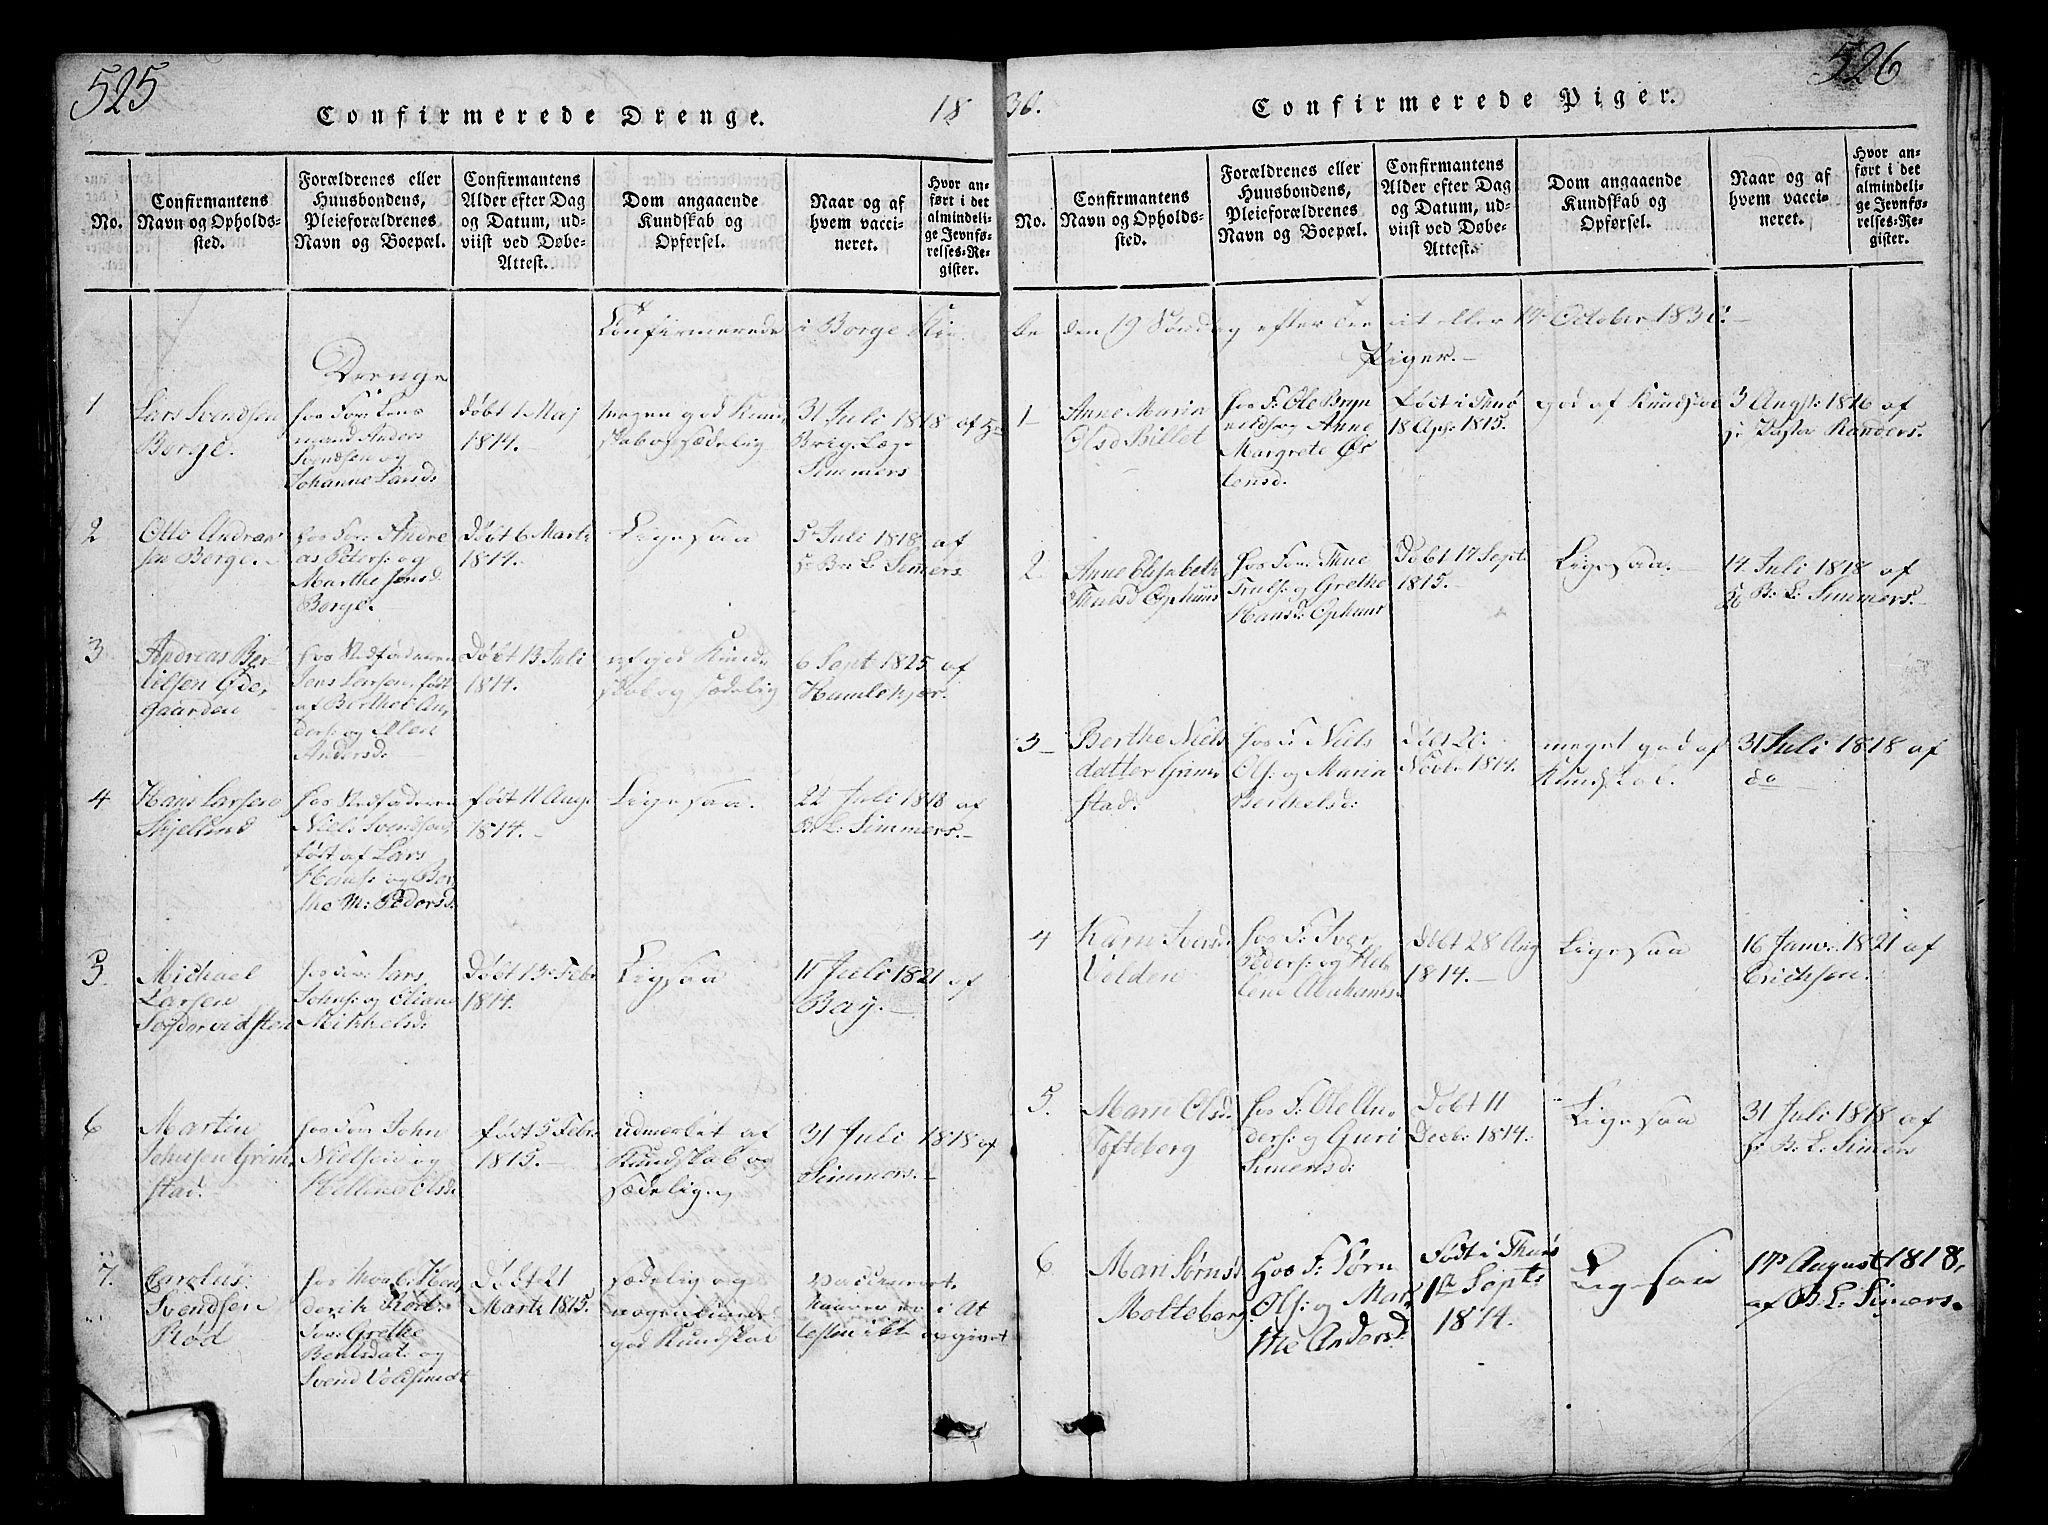 525
Confirmerede Drenge.
18
No.
Confirmantens
Navn og Opholds-
sted.
Forældrenes eller
Huusbondens,
Pleieforældrenes
Navn og Boepæl.
Confirmantens
Alder efter Dag
og Datum, ud-
viist ved Døbe-
Attest.
Dom angaaende
Kundskab og
Opførsel.
Naar og af
hvem vacci-
neret.
Hvor an-
ført i det
almindeli-
ge Jevnfø-
relses-Re-
gister.
Confirmerede i Borge
Drenge
1
Lars Svendsen
Borge.
hos For: Lens
mand Anders
Svendsen og
Johanne Larsd:
døbt 1 Maj
1814.
megen god Kund
skab og sædelig
31 Juli 1818 af Hr
Brig. Læge
Simmers
2
Otto Andrea
sen Borge.
hos For: Andre
as Peters: og
Marthe Jensd:
Borge.
Døbt 6 Marts
1814.
Ligesaa
5 Juli 1818 af
Br: L: Simers
3
Andreas Ber
tilsen Øde,
gaarden
hos Madfaderen
Jens Larsen, født
af Berthel An,
ders: og Ellen
Andersd:
Døbt 13 Juli
1814.
af god Kund
skab og sædelig
6 Sept 1825 af
Humlekjær.
4
Hans Larsen
Skjelland
hos Madfaderen
Niels Svendsen,
født af Lars
Hans: og Ber
the M: Pedersd:
født 11 Aug:
1814.
Ligesaa.
22 Juli 1818 af
B: L: Simmers.
5.
Michael
Larsen
hos For: Lars
Johns: og Eliane
Mikkelsd:
Døbt 13 Febr
1814.
Ligesaa
11 Juli 1821 af
Bay.
6
Martin
Johnsen Grim,
stad.
hos For: John
Nielsen og
Helene Olsd:
født 5 Febr
1815.
udmerket af
Kundskab og
sædelig.
31 Juli 1818 af
Simmers.
7.
Carolus
Svendsen
Rød
hos Morb: Hen
derik Rød.
For: Grethe
Bentsdat: og
Svend Voldsundt
Døbt 21
Marts 1815.
sædelig og
nogenlunde
god Kundskab
Vaccineret.
Naaren er i At
testen ikke opgivet
526
36.
Confirmerede Piger.
No.
Confirmantens
Navn og Opholds-
sted.
Forældrenes eller
Huusbondens,
Pleieforældrenes
Navn og Boepæl.
Confirmantens
Alder efter Dag
og Datum, ud-
viist ved Døbe-
Attest.
Dom angaaende
Kundskab og
Opførsel.
Naar og af
hvem vacci-
neret.
Hvor an-
ført i det
almindeli-
ge Jevnfø-
relses-Re-
gister.
den 19 Søndag efter Tre eller October
Piger.
1
Anne Maria
Olsd Billet
hos F: Ole Bryn
ildsog Anne
Margrete Øs
tensd.
Født i Thrø
18 Ap: 1815.
god af Kundskab
3 Augst: 1816 af
H: Pastor Randers.
2
Anne Elisabeth
Truls Ophuus
hos For: Thue
Truls: og Grethe
Hansd: Ophuus
Døbt 17 Sept:
1815.
Ligesaa.
14 Juli 1818 af
B: L: Simmers.
3
Berthe Niels
datter Grim,
stad.
hos F: Niels
Ols: og Maria
Berthelsd:
Døbt 20
Novb: 1814.
meget god af
Kundskab.
31 Juli 1818 af
do
4
Karn Iversd:
Velden
hos F: Iver
Peders: og He,
lene Abrahams
Døbt 28 Aug
1814.
Ligesaa
16 Janv: 1821 af
Erichsen.
5.
Marn Olsd:
Tofteberg
hos F: Ole An,
ders: og Guri
Simensd:
Døbt 11
Decb: 1814.
Ligesaa
31 Juli 1818 af
B: L: Simers
6
Mari Jørnsd
Rotteberg.
Hos F: Jørn
Ols: og Mar,
the Andersd.
Født i Thrøs
1st Septs
1814.
Ligesaa
17 August 1818,
af B. L: Simers.